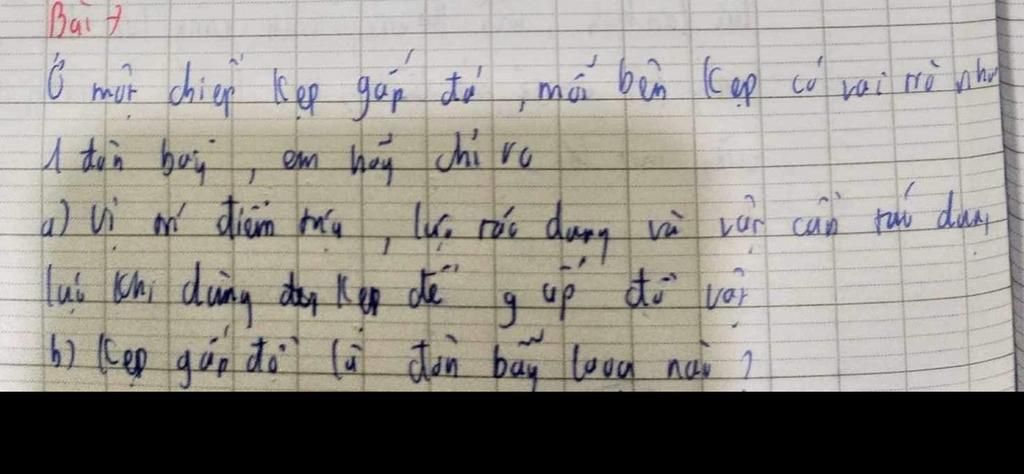 Bài 7
Ở một chiếc kẹp gắp đá, mỗi bên kẹp có vai trò như
1 đòn bẩy, em hãy chỉ ra
a) Vị trí điểm tựa, lực tác dụng và vật cần tác dụng
lực khi dùng kẹp để gắp đồ vật
b) Kẹp gắp đồ là đòn bẩy loại nào?